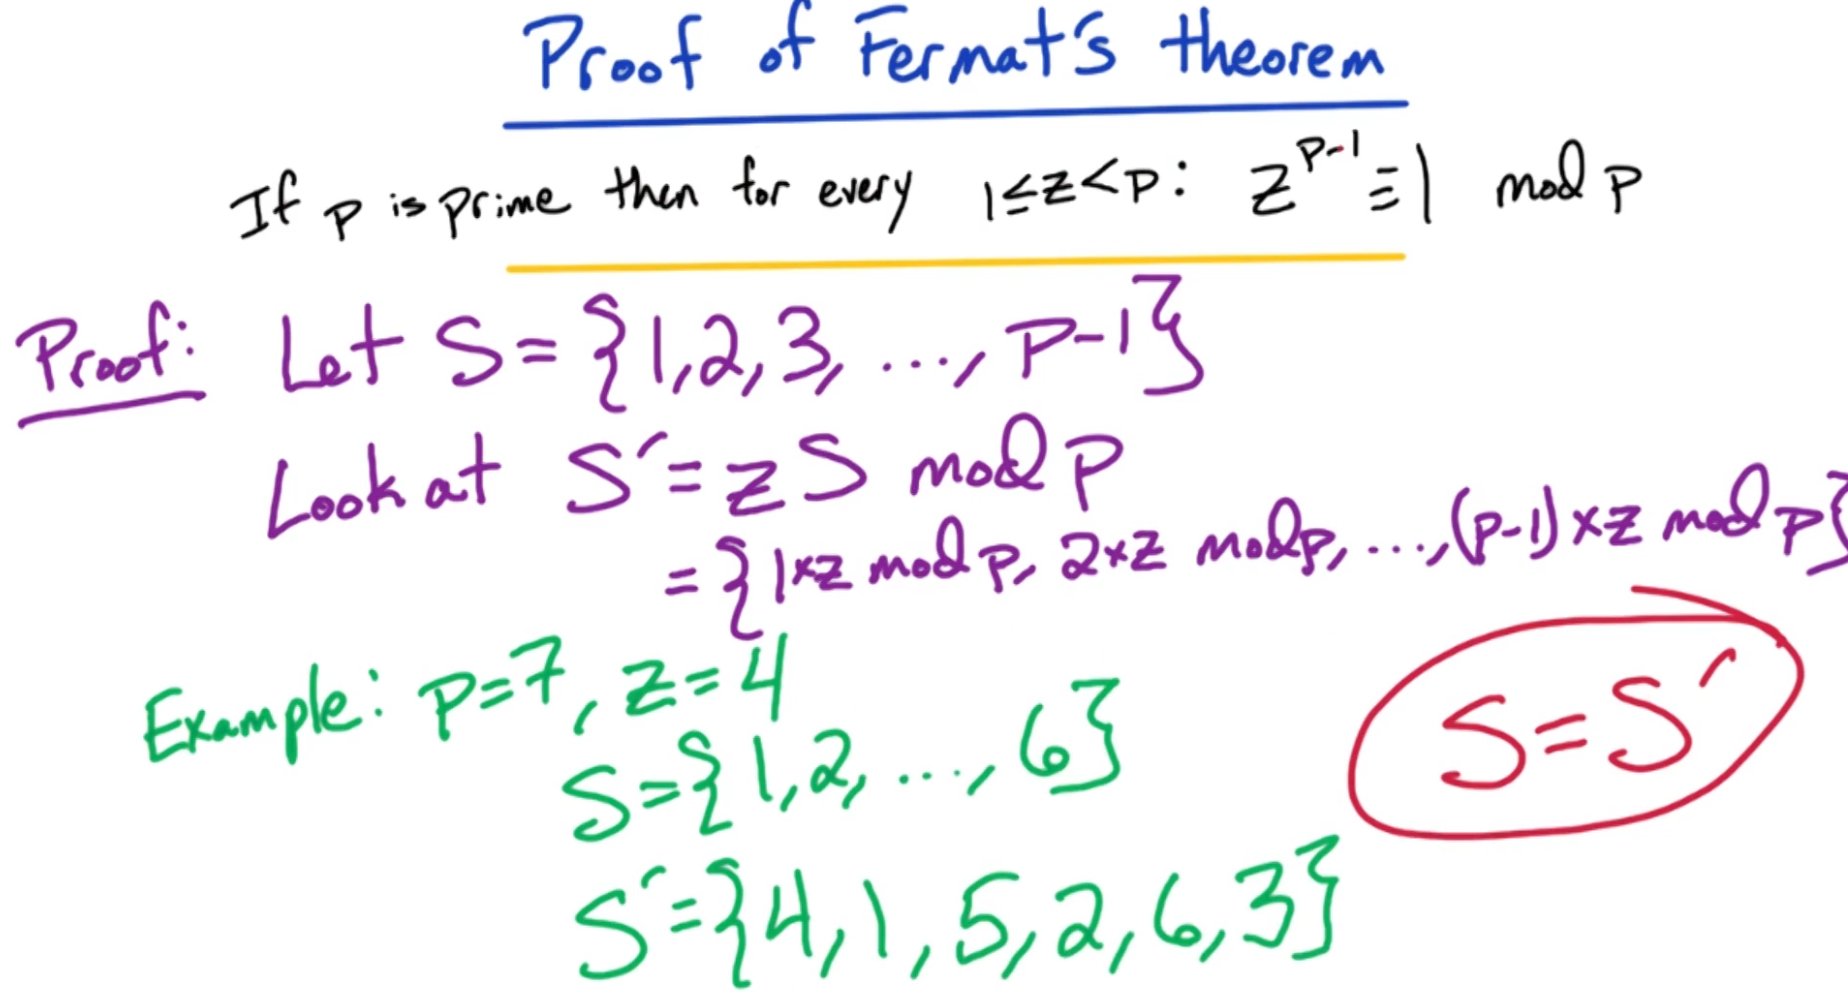 Proof of Fermat's theorem
If p is prime then for every 1≤z<p: z^{p-1} ≡ 1 mod p
Proof: Let S = {1,2,3, ..., p-1}
Look at S' = zS mod p
= {1×z mod p, 2×z mod p, ..., (p-1)×z mod p}
Example: p=7, z=4
S={1,2, ..., 6}
S=S'
S'={4,1,5,2,6,3}